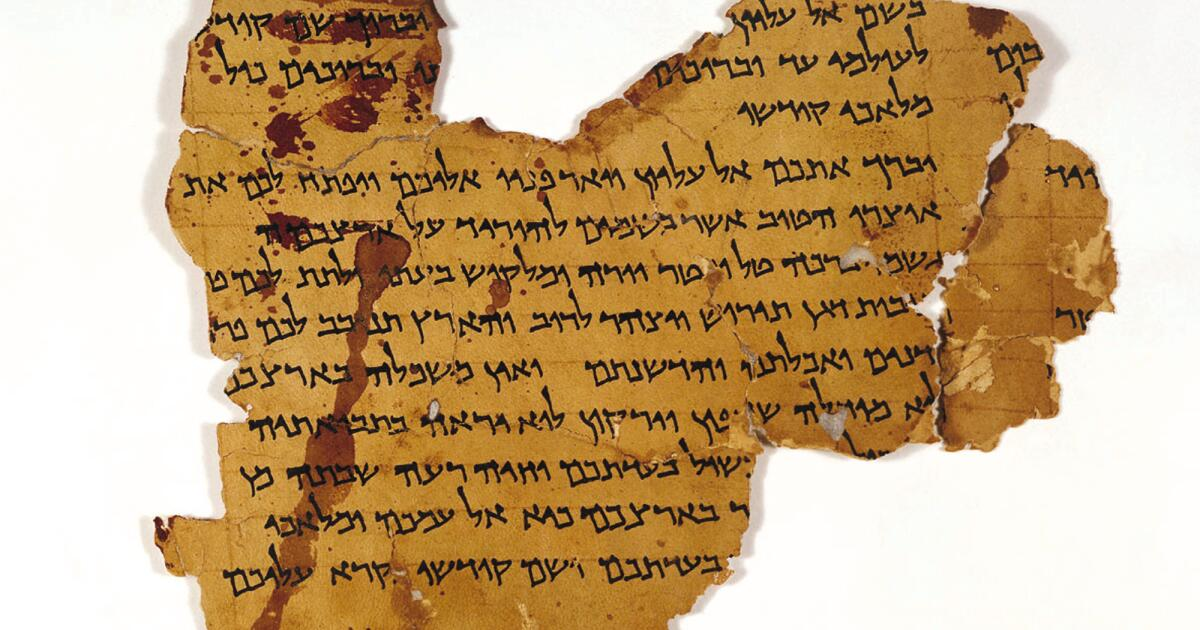 בשם אל עליון וברוך שם קודש
לעולמי עד וברוכים וברוכים כול
מלאכי קודשו
יברך אתכם אל עליון ויאר פניו אליכם ויפתח לכם את
אוצרו הטוב אשר בשמים להוריד על ארצכם
גשמי ברכה טל ו טר יורה ומלקוש בעתו ולתת לכם
בות דגן תירוש ויצהר לרוב והארץ תנובב לכם פר
דנים ואכלתם והדשנתם ואין משכלה בארצכם
וא מוחלה שדפון וירקון לוא יראה בתבואתיה
שול בעדתכם וחיה רעה שבתה מן
ר בארצכם כיא אל עמכם ומלאכי
בעדתכם ושם קודשו נקרא עליכם